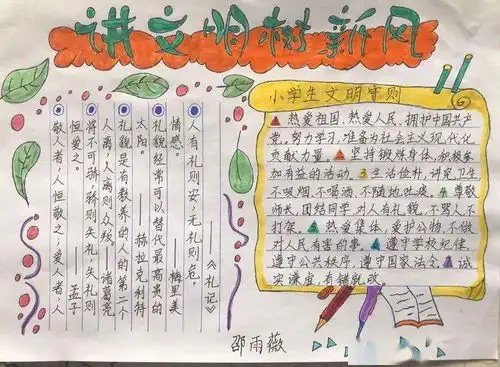 讲文明树新风
敬人者,人恒敬之;爱人者,人
恒爱之。——孟子
将不可骄,骄则失礼,失礼则
人离,人离则众叛——诸葛亮
礼貌是有教养的人的第二个
太阳。——赫拉克利特
礼貌经常可以替代最高贵的
情感。——梅里美
人有礼则安,无礼则危。
——《礼记》
小学生文明守则
6
1 热爱祖国,热爱人民,拥护中国共产
党。努力学习,准备为社会主义现代化
贡献力量。2 坚持锻炼身体,积极参
加有益的活动。3 生活俭朴,讲究卫生
不吸烟,不喝酒,不随地吐痰。4 尊敬
师长,团结同学,对人有礼貌,不骂人不
打架。5 热爱集体,爱护公物,不做
对人民有害的事。6 遵守学校纪律,
遵守公共秩序,遵守国家法令。诚
实谦虚,有错就改。
邵雨薇